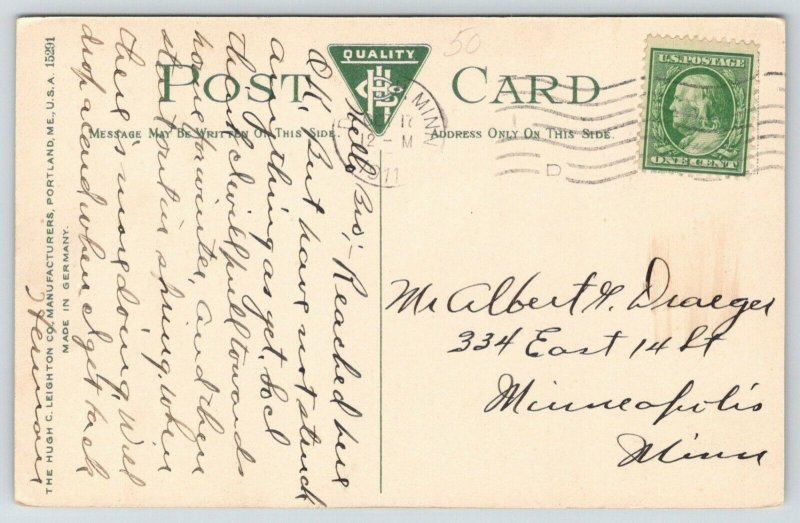 QUALITY
POST CARD
MESSAGE MAY BE WRITTEN ON THIS SIDE.
ADDRESS ONLY ON THIS SIDE.
50
U.S. POSTAGE
ONE CENT
MINN
12-M
11
D
Hello Bro; - Reached here
O.K. But have not struck
anything as yet. So I
think I will pull towards
home for winter, and then
start out in spring, when
there's more doing. Will
drop a card when I get back
Herman
Mr Albert G. Draeger
334 East 14 St
Minneapolis
Minn
THE HUGH C. LEIGHTON CO., MANUFACTURERS, PORTLAND, ME., U.S.A. 15291
MADE IN GERMANY.